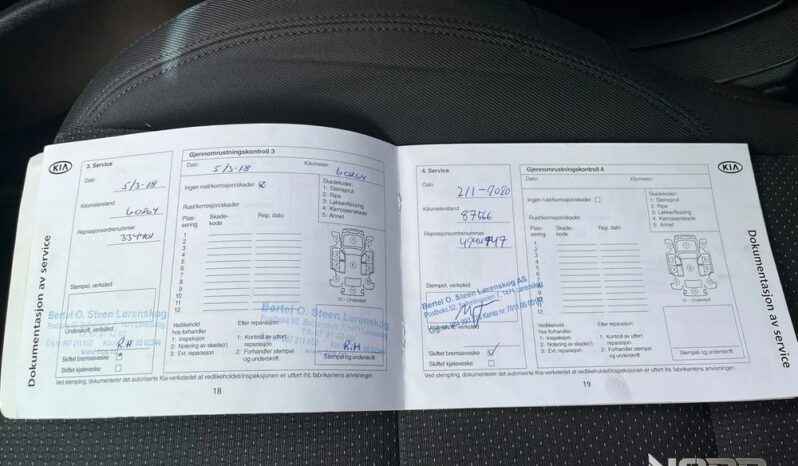 KIA
3. Service
Dato
5/3-18
Kilometerstand
60264
Reprasjonsordrenummer
Stempel, verksted
Bertel O. Steen Lørenskog
Underskrift, verksted
R.H
Skiftet bremsevæske
Skiftet kjølevæske
Dokumentasjon av service
Gjennomrustningskontroll 3
Dato: 5/3-18
Kilometer: 60264
Ingen rust/korrosjon/skader
Rust/korrosjon/skader:
Plas-sering
Skade-kode
Rep. dato
1
2
3
4
5
6
7
8
9
10
11
12
Skadekoder:
1: Steinsprut
2: Ripe
3: Lakkavflassing
4: Karrosseriskade
5: Annet
12 – Understell
Bertel O. Steen Lørenskog
Vedlikehold hos forhandler
1: Inspeksjon
2: Notering av skade(r)
3: Evt. reparasjon
Etter reparasjon:
1: Kontroll av utført reparasjon
2: Forhandler stempel og underskrift
R.H
Stempel og underskrift
Ved stempling, dokumenterer det autoriserte Kia-verkstedet at vedlikeholdet/inspeksjonen er utført iht. fabrikantens anvisninger.
18
4. Service
Dato
2/1-2020
Kilometerstand
87566
Reprasjonsordrenummer
Stempel, verksted
Bertel O. Steen Lørenskog AS
Underskrift, verksted
Skiftet bremsevæske
Skiftet kjølevæske
Gjennomrustningskontroll 4
Dato:
Kilometer:
Ingen rust/korrosjon/skader
Rust/korrosjon/skader:
Plas-sering
Skade-kode
Rep. dato
1
2
3
4
5
6
7
8
9
10
11
12
Skadekoder:
1: Steinsprut
2: Ripe
3: Lakkavflassing
4: Karrosseriskade
5: Annet
12 – Understell
Vedlikehold hos forhandler
1: Inspeksjon
2: Notering av skade(r)
3: Evt. reparasjon
Etter reparasjon:
1: Kontroll av utført reparasjon
2: Forhandler stempel og underskrift
Stempel og underskrift
Ved stempling, dokumenterer det autoriserte Kia-verkstedet at vedlikeholdet/inspeksjonen er utført iht. fabrikantens anvisninger.
19
KIA
Dokumentasjon av service